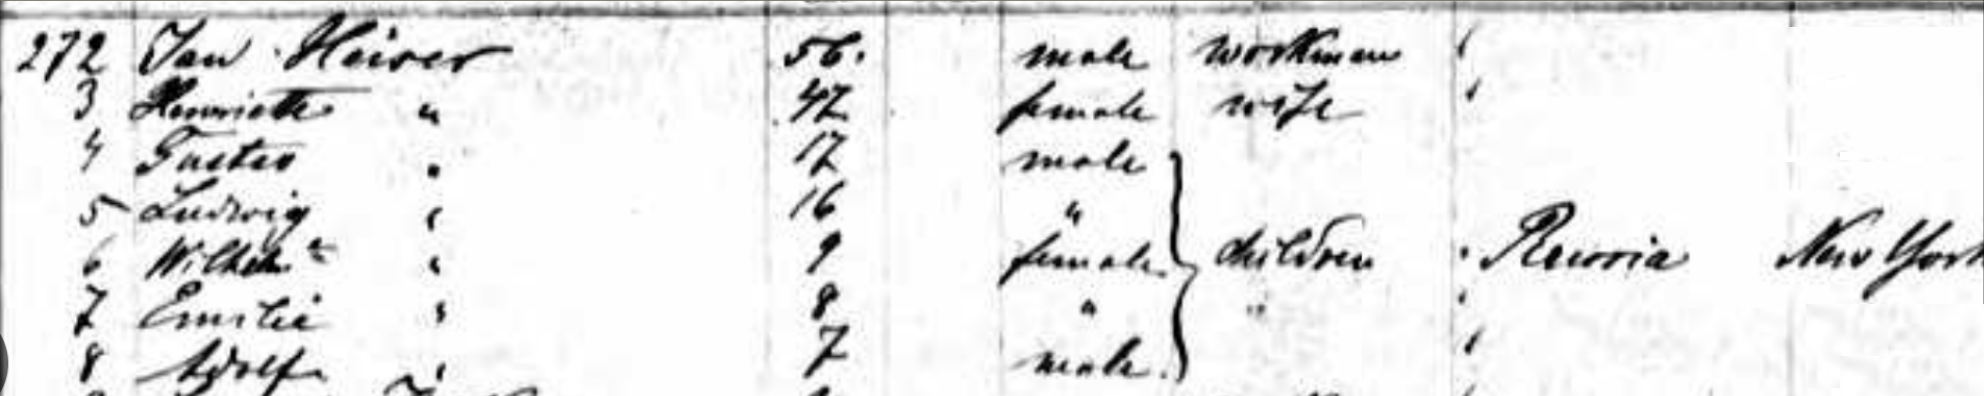 272 Jan Heiser 56. male workman
3 Henriette " 47 female wife
4 Gustav " 17 male
5 Ludwig " 16 "
6 Wilhelm^e " 9 female children " New York
7 Emilie " 8 " "
8 Adolf " 7 male